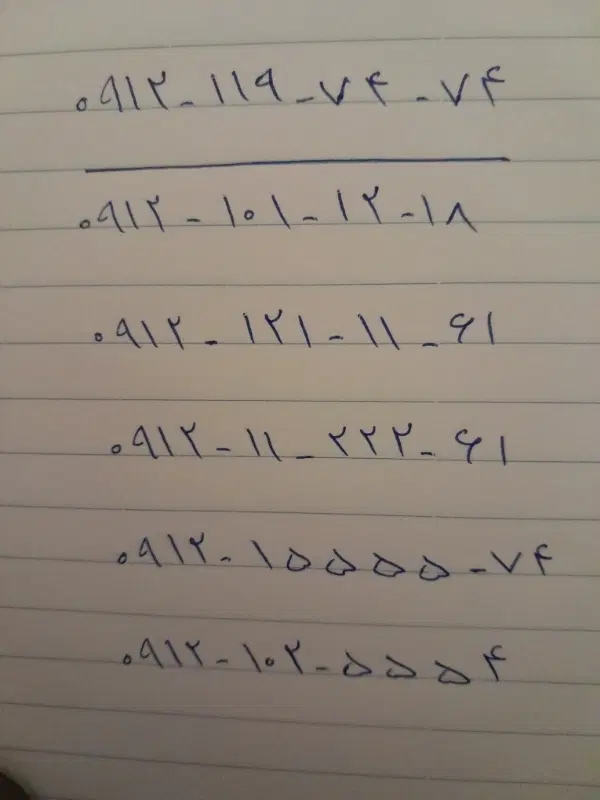 ۰۹۱۲-۱۱۹-۷۴-۷۴
۰۹۱۲-۱۰۱-۱۲-۱۸
۰۹۱۲-۱۲۱-۱۱-۶۱
۰۹۱۲-۱۱-۲۲۲-۶۱
۰۹۱۲-۱۵۵۵۵-۷۴
۰۹۱۲-۱۰۲-۵۵۵۴